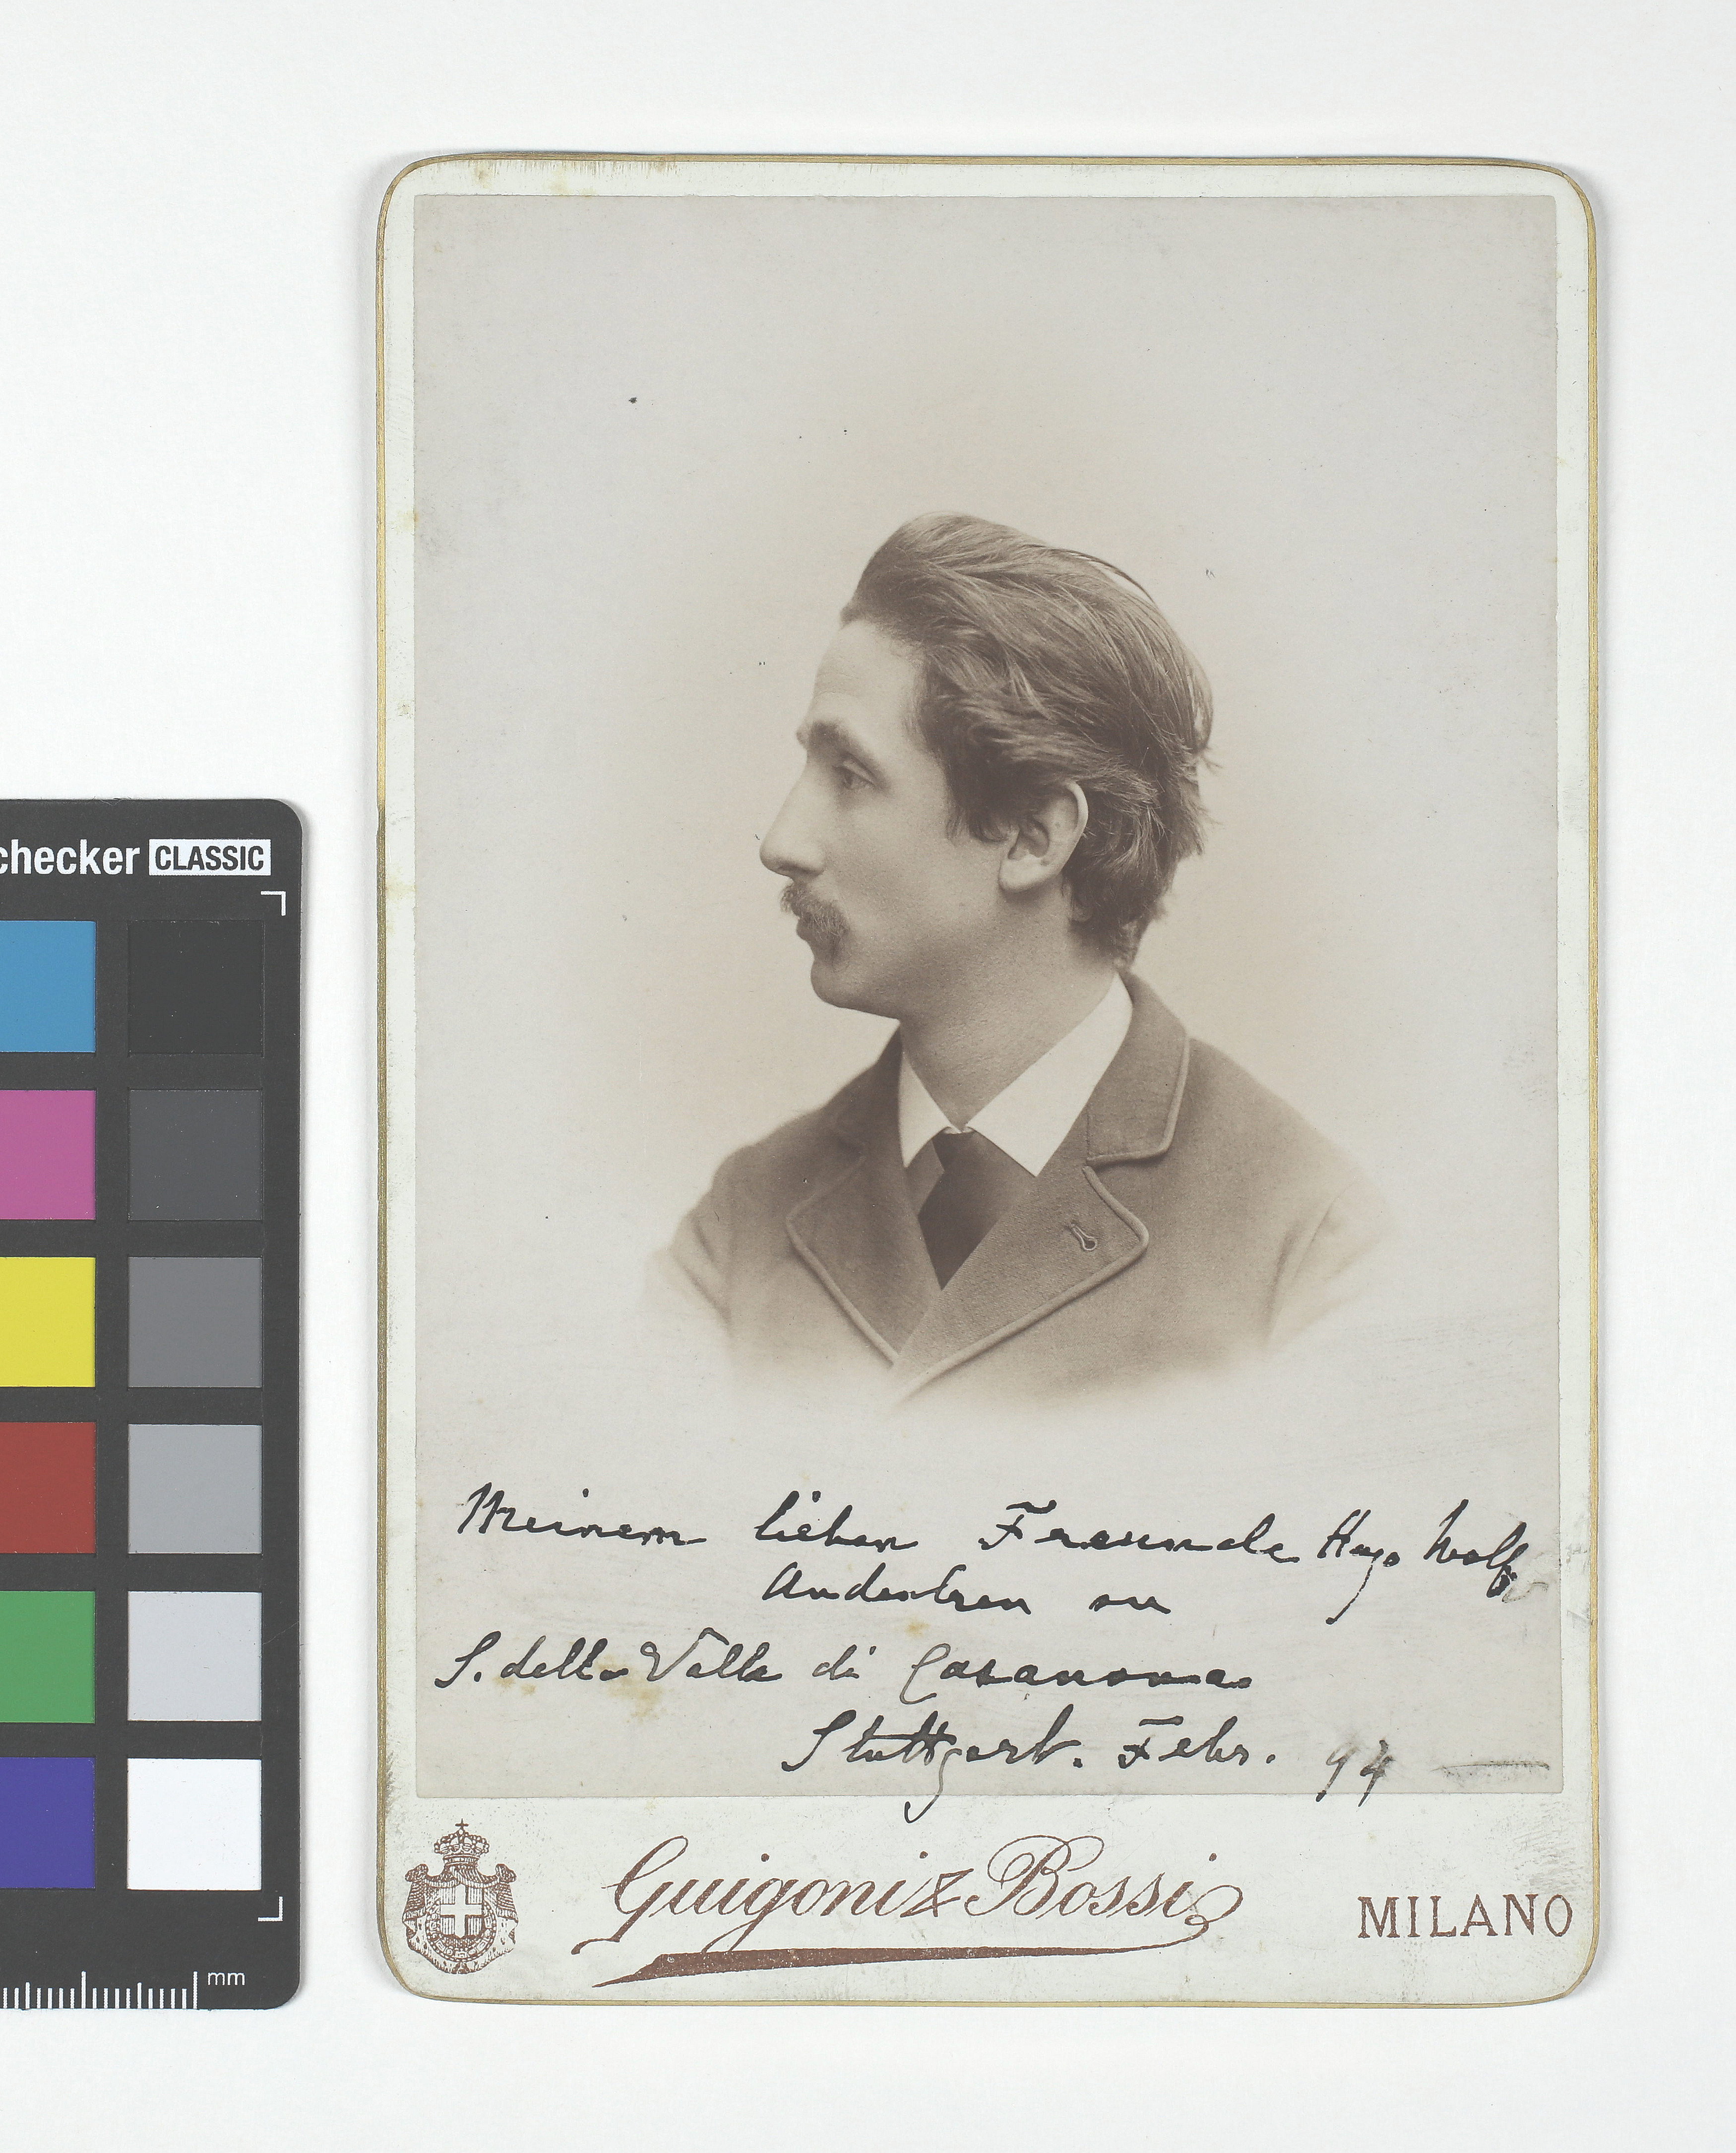 checker CLASSIC
mm
Meinem lieben Freunde Hugo Wolf
Andenken an
S. della Valle di Casanova
Stuttgart. Febr. 94
Guigoni & Bossi
MILANO